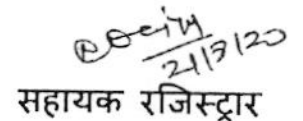 21/7/20
सहायक रजिस्ट्रार